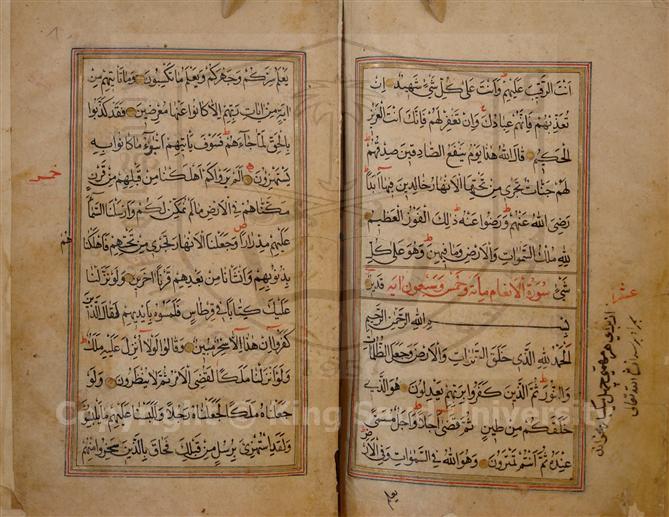 انت الرقيب عليهم وانت على كل شئ شهيد ان
تعذبهم فانهم عبادك وان تغفر لهم فانك انت العزيز
الحكيم قال الله هذا يوم ينفع الصادقين صدقهم
لهم جنات تجرى من تحتها الانهار خالدين فيها ابدا
رضى الله عنهم ورضوا عنه ذلك الفوز العظيم
لله ملك السموات والارض وما فيهن وهو على كل
شئ قدير
سورة الانعام مائة وخمس وستون اية
بسم الله الرحمن الرحيم
الحمد لله الذى خلق السموات والارض وجعل الظلمات
والنور ثم الذين كفروا بربهم يعدلون هو الذى
خلقكم من طين ثم قضى اجلا واجل مسمى
عنده ثم انتم تمترون وهو الله فى السموات وفى الارض
يعلم
عشر
يعلم سركم وجهركم ويعلم ما تكسبون وما تاتيهم من
اية من ايات ربهم الا كانوا عنها معرضين فقد كذبوا
بالحق لما جاءهم فسوف ياتيهم انبؤا ما كانوا به
يستهزؤن الم يروا كم اهلكنا من قبلهم من قرن
مكناهم فى الارض ما لم نمكن لكم وارسلنا السماء
عليهم مدرارا وجعلنا الانهار تجرى من تحتهم فاهلكنا
هم
بذنوبهم وانشانا من بعدهم قرنا اخرين ولو نزلنا
عليك كتابا فى قرطاس فلمسوه بايديهم لقال الذين
كفروا ان هذا الا سحر مبين وقالوا لولا انزل عليه ملك
ولو انزلنا ملكا لقضى الامر ثم لا ينظرون ولو
جعلناه ملكا لجعلناه رجلا وللبسنا عليهم ما يلبسون
ولقد استهزئ برسل من قبلك فحاق بالذين سخروا منهم
Copyright © King Saud University
1957